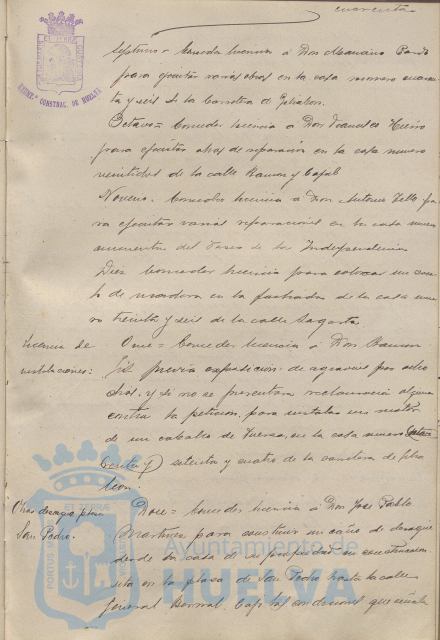 cuarenta
Septimo = Conceder licencia á Don Mariano Pardo
para ejecutar varias obras en la casa numero cuaren-
ta y seis de la Carretera de Gibraleon.
Octavo = Conceder licencia á Don Francisco
para ejecutar obras de reparación en la casa numero
veintidos de la calle Ramon y Cajal
Noveno. Conceder licencia á Don Antonio Tello pa-
ra ejecutar varias reparaciones en la casa numero
cincuenta del Paseo de la Independencia
Diez Conceder licencia para colocar un zoca-
lo de madera en la fachada de la casa nume-
ro treinta y seis de la calle Sagasta
Licencia de
instalaciones:
Once = Conceder licencia á Don Ramon
Gil previa exposicion de agravios por ocho
dias, y si no se presentara reclamación alguna
contra la peticion, para instalar un motor
de un caballo de fuerza, en la casa numero
setenta y cuatro de la carretera de Gibra
leon.
Obras desagüe plaza
San Pedro.
Doce = Conceder licencia á Don Jose Pablo
Martinez para construir un caño de desague
desde la casa de su propiedad en construccion
sita en la plaza de San Pedro hasta la calle
General Bernal, bajo las condiciones que señala
REGNET. CONSTRUC. DE HUELVA
PORTUS MARIS
Ayuntamiento de
HUELVA